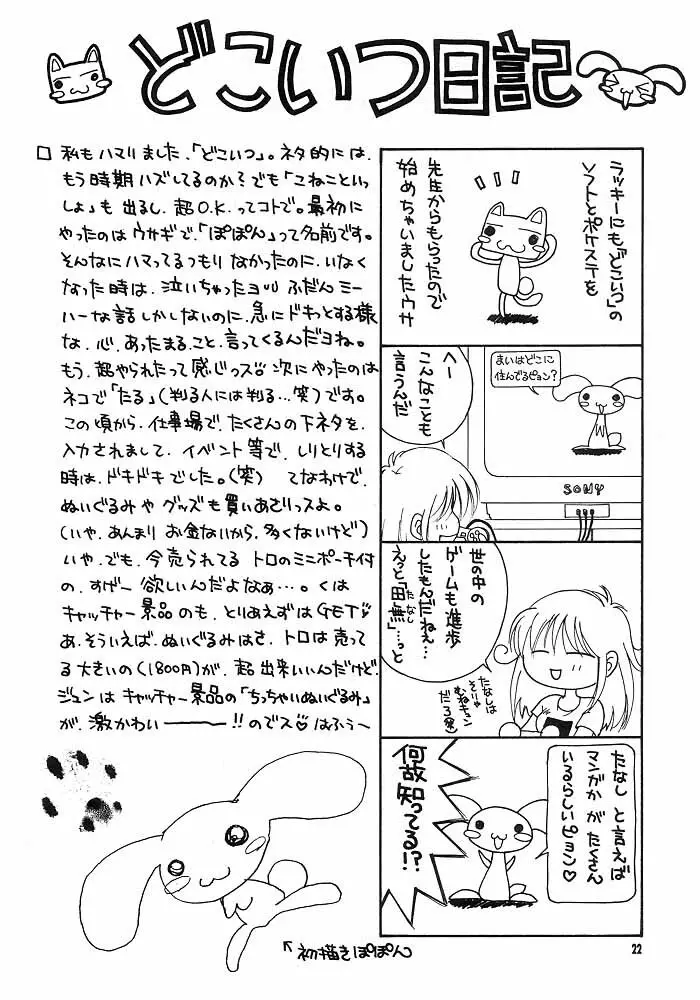 どこいつ日記
私もハマりました、「どこいつ」。ネタ的には、
もう時期ハズしてるのか?でも「こねこといっ
しょ」も出るし、超O.K.ってコトで。最初に
やったのはウサギで、「ぽぽん」って名前です。
そんなにハマってるつもりなかったのに、いなく
なった時は、泣いちゃったヨりり ふだんミー
ハーな話しかしないのに、急にドキっとする様
な、心、あったまること、言ってくるんだヨね。
もう、超やられたって感じっス 次にやったのは
ネコで「たる」(判る人には判る…笑)です。
この頃から、仕事場で、たくさんの下ネタを、
入力されまして、イベント等で、しりとりする
時は、ドキドキでした。(笑) てなわけで、
ぬいぐるみやグッズも買いあさりっスよ。
(いや、あんまりお金ないから、多くないけど)
いや、でも、今売られてるトロのミニポーチ付
の、すげー欲しいんだよなぁ…。くは
キャッチャー景品のも、とりあえずはGET♡
あ、そういえば、ぬいぐるみはさ、トロは売って
る大きいの(1800円)が、超出来いいんだけど、
ジュンはキャッチャー景品の「ちっちゃいぬいぐるみ」
が、激かわいー!!のでス♡はふぅ~
ラッキーにも「どこいつ」の
ソフトとポケステを
先生からもらったので
始めちゃいましたウサ
まいはどこに
住んでるピョン?
へー
こんなことも
言うんだ
SONY
世の中の
ゲームも進歩
したもんだねぇ…
えっと「田無」…っと
たなし
たなしは
そりゃ
むねキュン
だろ(笑)
たなしと言えば
マンガかがたくさん
いるらしいピョン♡
何故知ってる!?
初描きぽぽん
22